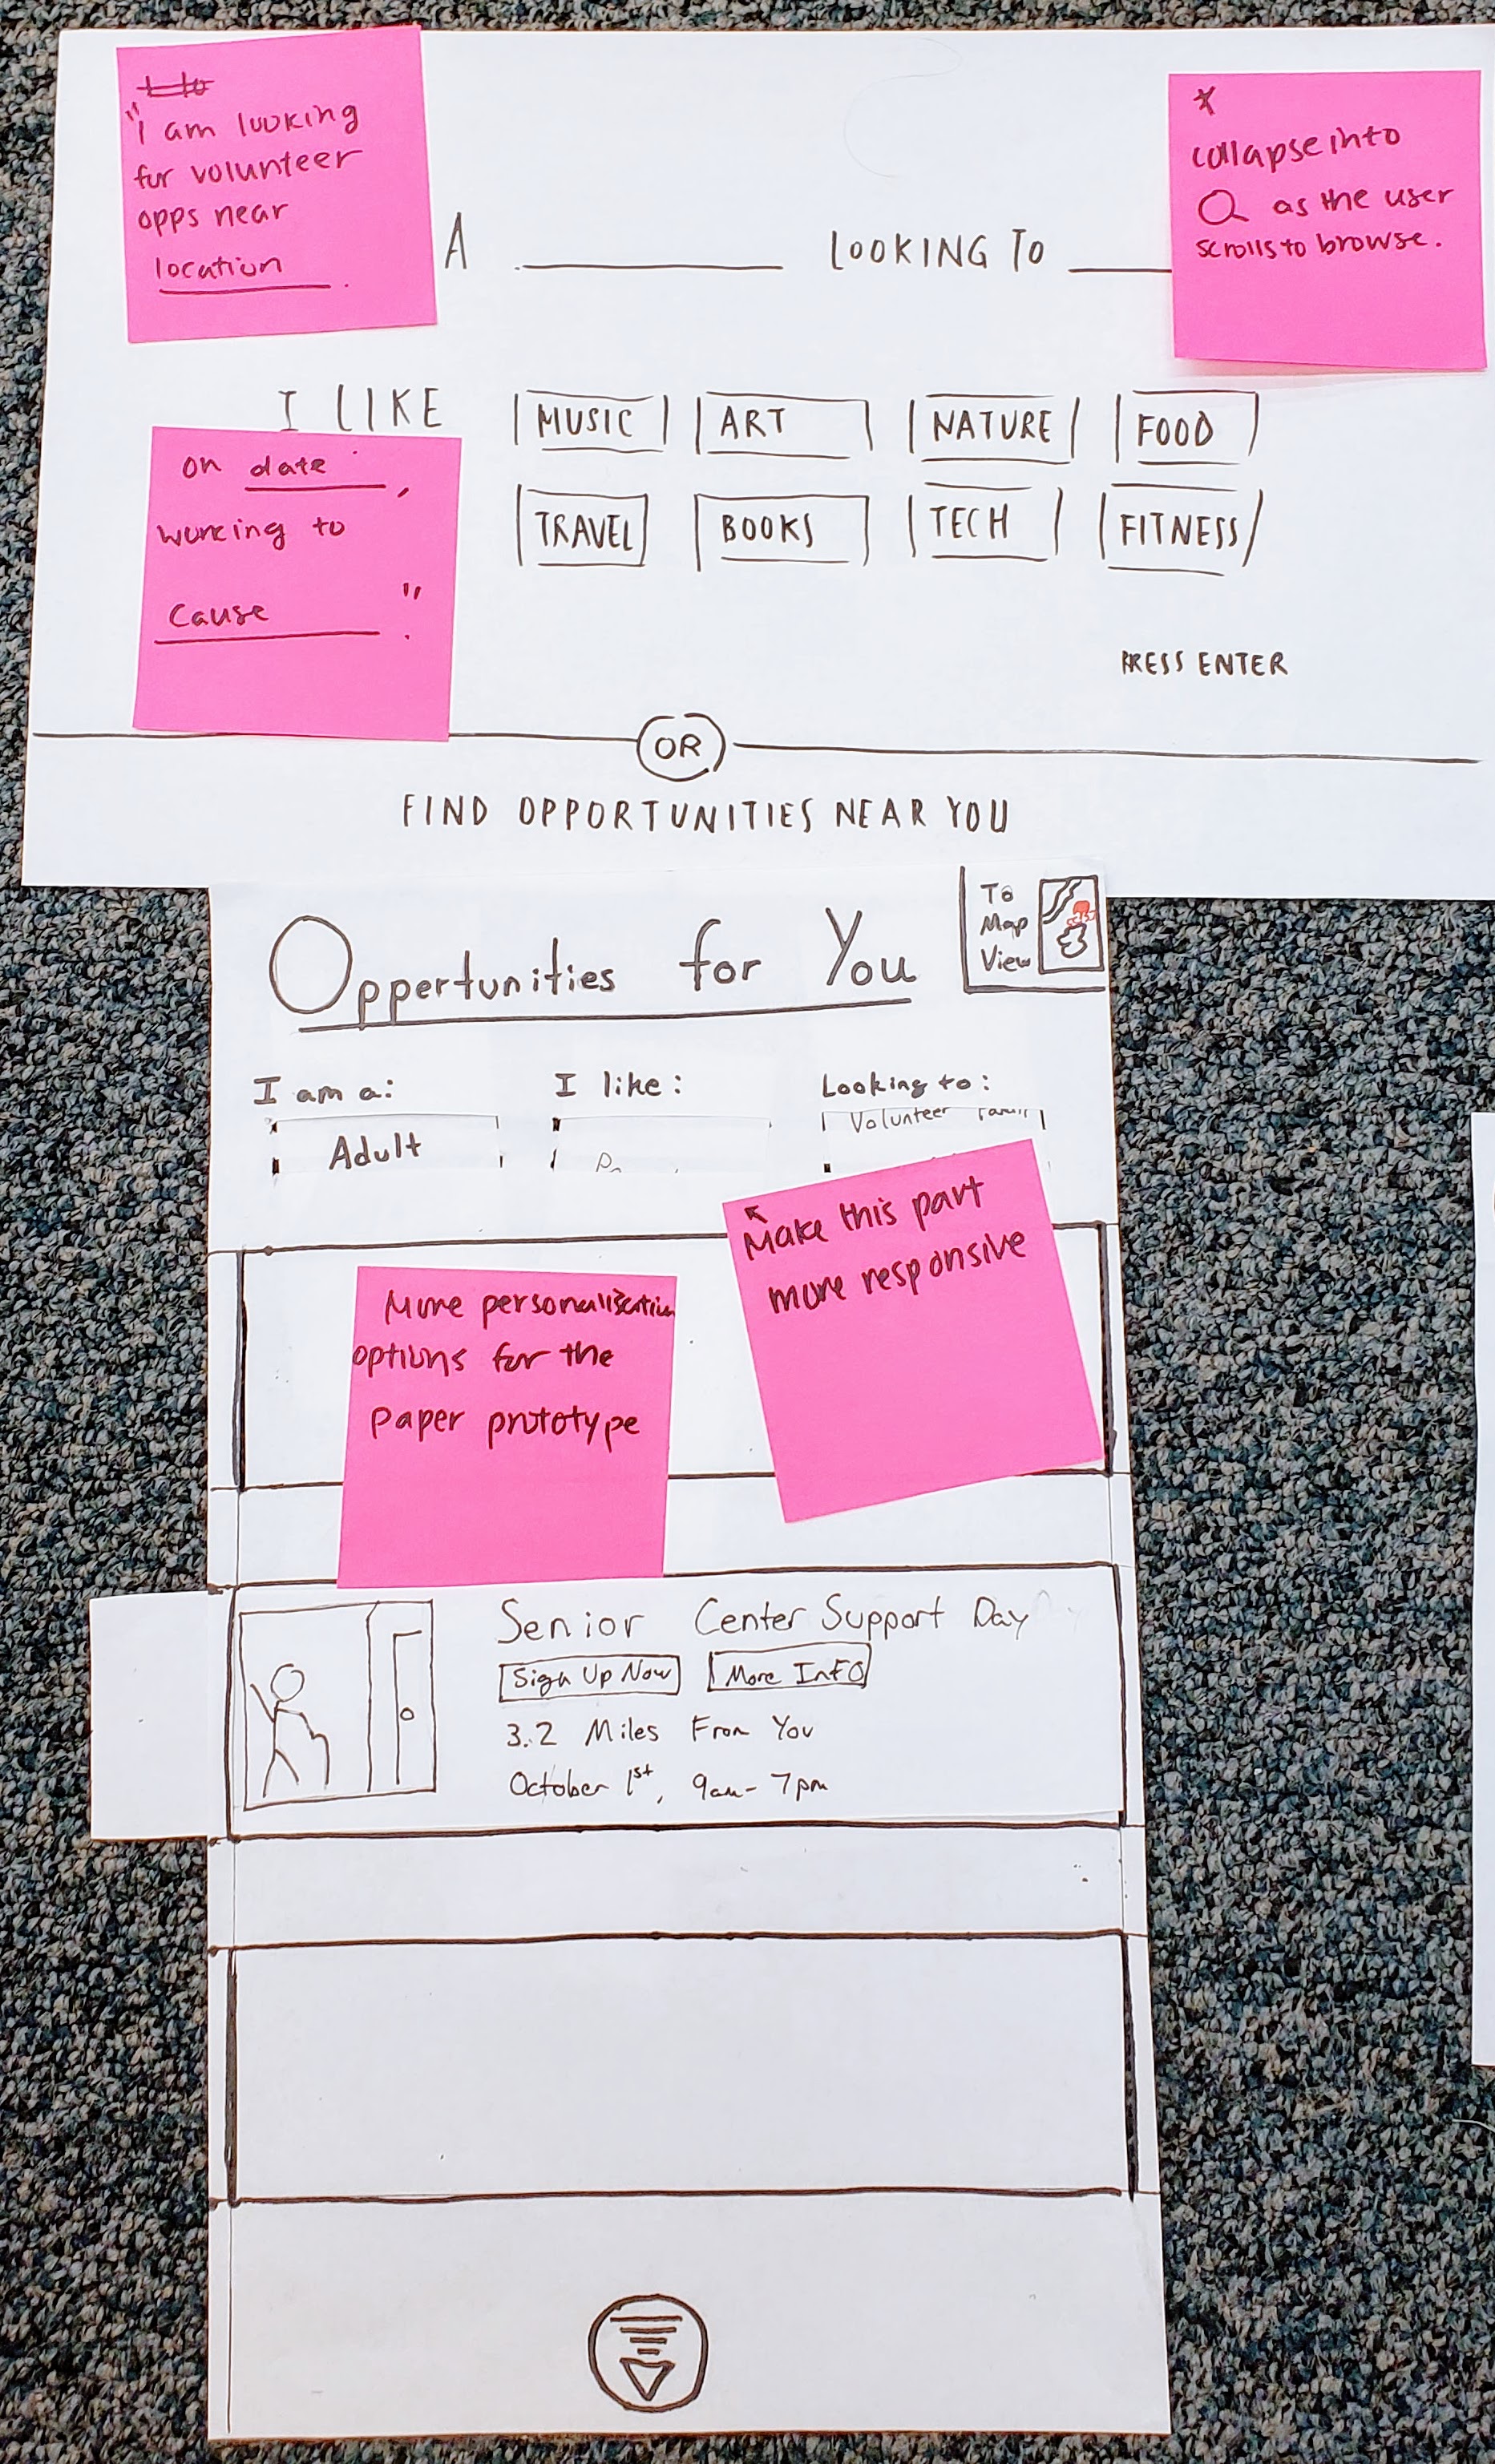 "I am looking
for volunteer
opps near
location.
*
collapse into
as the user
scrolls to browse.
A LOOKING TO
I LIKE
MUSIC ART NATURE FOOD
TRAVEL BOOKS TECH FITNESS
on date,
working to
Cause."
PRESS ENTER
OR
FIND OPPORTUNITIES NEAR YOU
Oppertunities for You
To
Map
View
I am a: I like: Looking to:
Adult
Volunteer
Make this part
more responsive
More personalization
options for the
paper prototype
Senior Center Support Day
Sign Up Now More Info
3.2 Miles From You
October 1st, 9am - 7pm